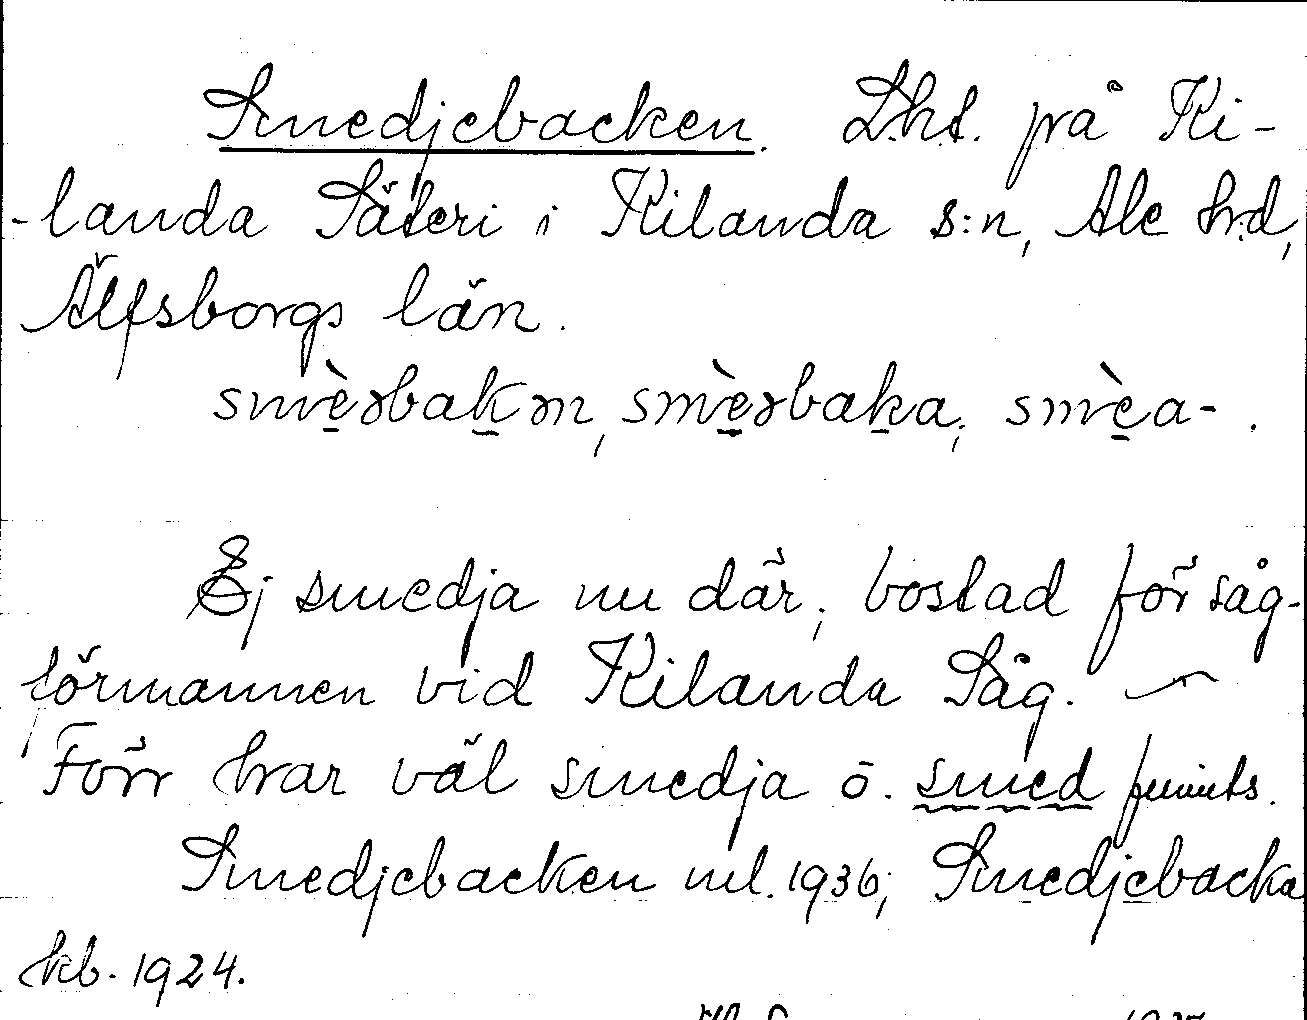 Smedjebacken. Lht. på Ki-
-landa Säteri i Kilanda s:n, Ale hd,
Älfsborgs län.
smèəbakən, smèəbaka, smèa-.
Ej smedja nu där, bostad för såg-
förmannen vid Kilanda Såg. —
Förr har väl smedja o. smed funnits.
Smedjebacken ml. 1936; Smedjebacka
kb. 1924.